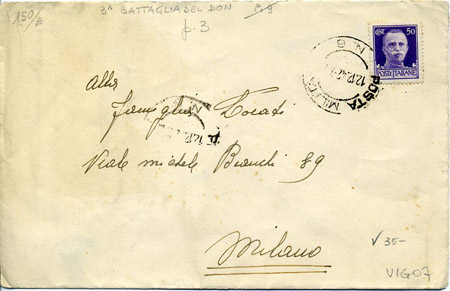 150/E
3ª BATTAGLIA DEL DON P.9
p.3
CENT 50
POSTE ITALIANE
POSTA MILITARE N. 9
12.12.42
Alla
Famiglia Locati
Viale Michele Bianchi 89
Milano
√ 35-
VIG07